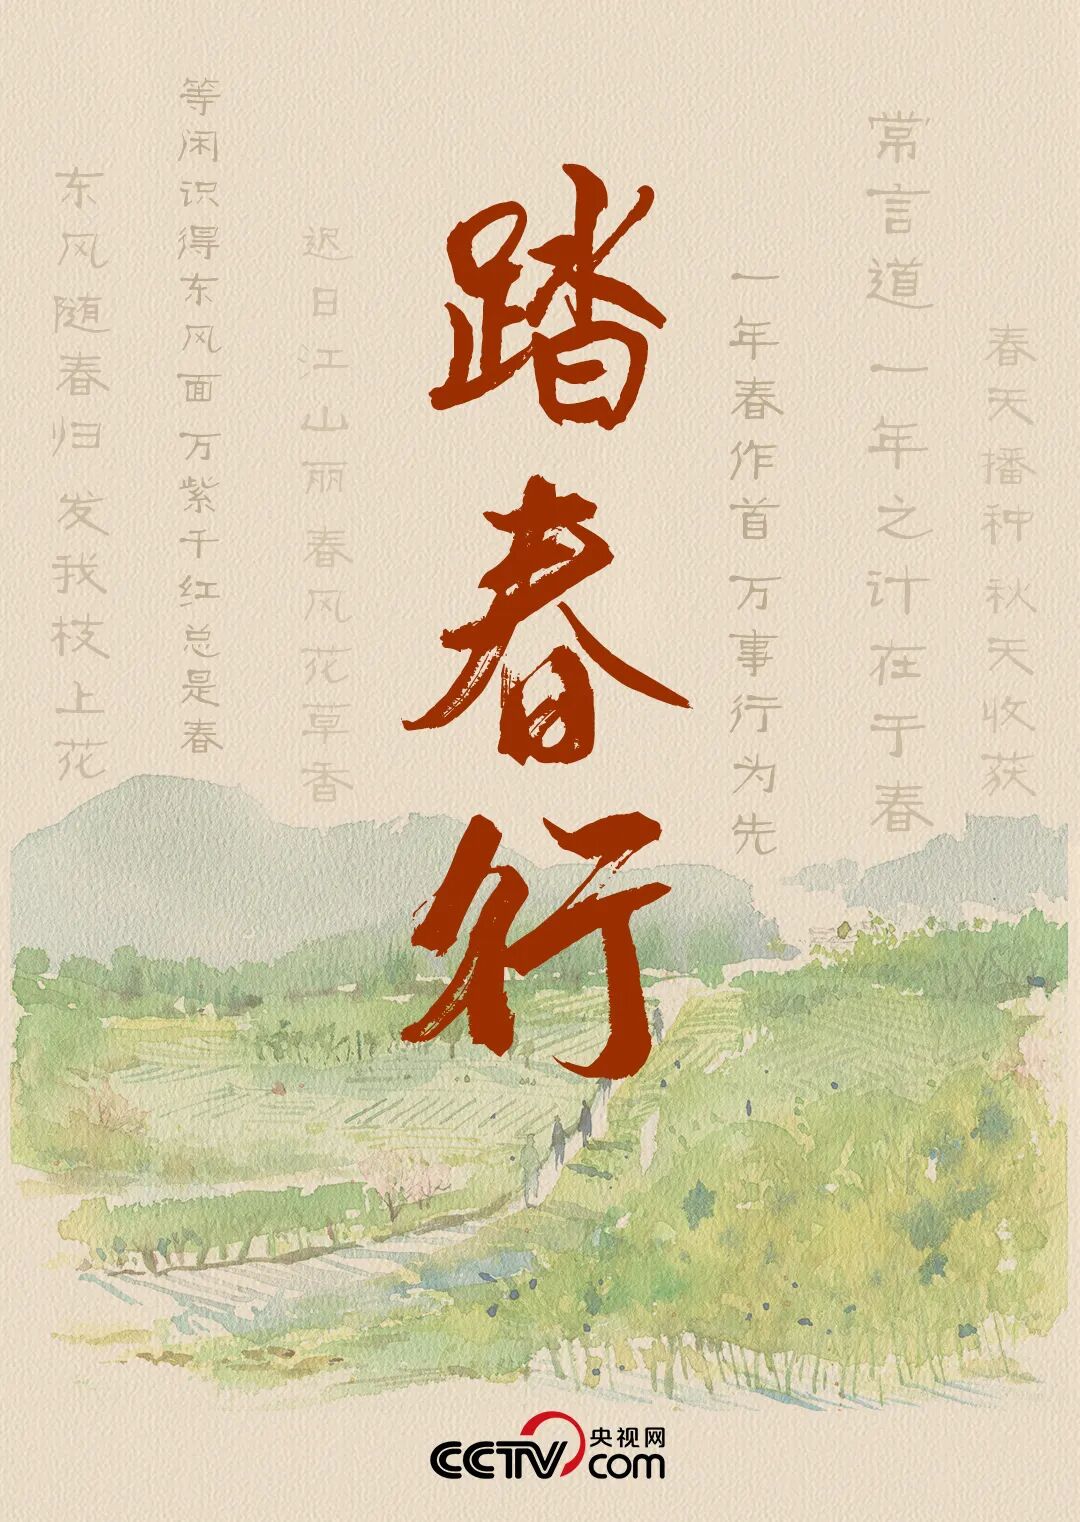 踏春行
春天播种 秋天收获
常言道 一年之计在于春
一年春作首 万事行为先
迟日江山丽 春风花草香
等闲识得东风面 万紫千红总是春
东风随春归 发我枝上花
CCTV.com 央视网